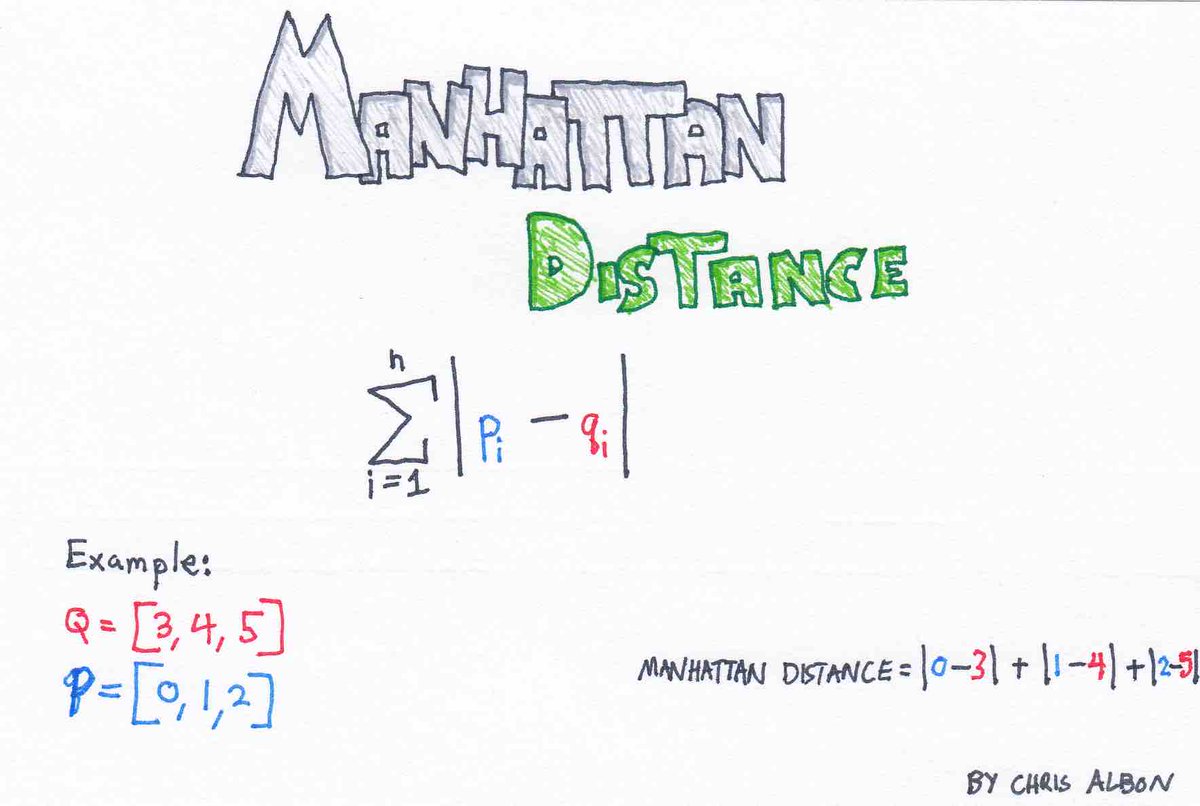 MANHATTAN
DISTANCE
n
∑ | pi − qi |
i=1
Example:
Q = [3, 4, 5]
P = [0, 1, 2]
MANHATTAN DISTANCE = |0−3| + |1−4| + |2−5|
BY CHRIS ALBON